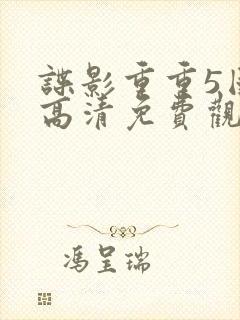 諜影重重5
高清免費觀
馮呈瑞